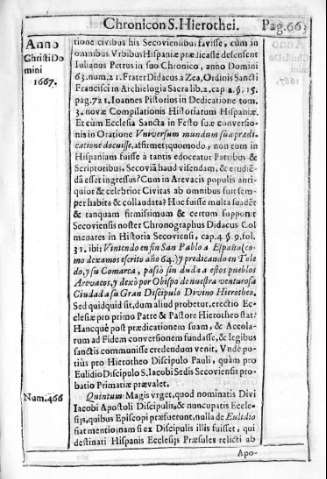 Chronicon S. Hierothei. Pag. 66
Anno
Christi Do
mini
1667.
tione civibus his Secoviensibus favisse, cùm in
omnibus Vrbibus Hispaniæ prædicasse defenset
Iulianus Petrus in suo Chronico, anno Domini
63. num. 21. Frater Didacus a Zea, Ordinis Sancti
Francisci in Archielogia Sacra lib. 2. cap. 2. §. 15.
pag. 72 1. Ioannes Pistorius in Dedicatione tom.
3. novæ Compilationis Historiarum Hispaniæ.
Et cùm Ecclesia Sancta in Festo suæ conversio-
nis in Oratione Vniversum mundum sua prædi-
catione docuisse, affirmet; quomodo, non eum in
Hispaniam fuisse à tantis edoceatur Patribus &
Scriptoribus, Secoviã haud visendam, & erudiẽ-
dã esset ingressus? Cum in Arevacis populis antiq-
uior & celebrior Civitas ab omnibus fuit sem-
per habita & collaudata? Huc fuisse multa suadẽt
& tanquam firmissimum & certum supponit
Secoviensis noster Chronographus Didacus Col
menares in Historia Secoviensi, cap. 4. §. 9. fol.
31. ibi: Vintendo en fin San Pablo a España (co-
mo dexamos escrito año 64.) y predicando en Tole
do, y su Comarca, pasiò sin duda a estos pueblos
Arevacos, y dexò por Obispo de nuestra venturosa
Ciudad a su Gran Discipulo Divino Hierotheo.
Sed quidquid sit, dum aliud probetur, erectio Ec-
clesiæ pro primo Patre & Pastore Hierotheo stat:
Hancque post prædicationem suam, & Accola-
rum ad Fidem conversionem fundasse, & legibus
sanctis communisse credendum venit. Vnde po-
tiùs pro Hierotheo Discipulo Pauli, quàm pro
Eulidio Discipulo S. Iacobi Sedis Secoviensis pro-
batio Primatiæ prævalet.
Num. 466
Quintum: Magis vrget, quod nominatis Divi
Iacobi Apostoli Discipulis, & nuncupatis Eccle-
sijs, quibus Episcopi præfuerunt, nulla de Eulidio
fiat mentio; nam si ex Discipulis illis fuisset, qui
destinati Hispanis Ecclesijs Præsules relicti ab
Apo-